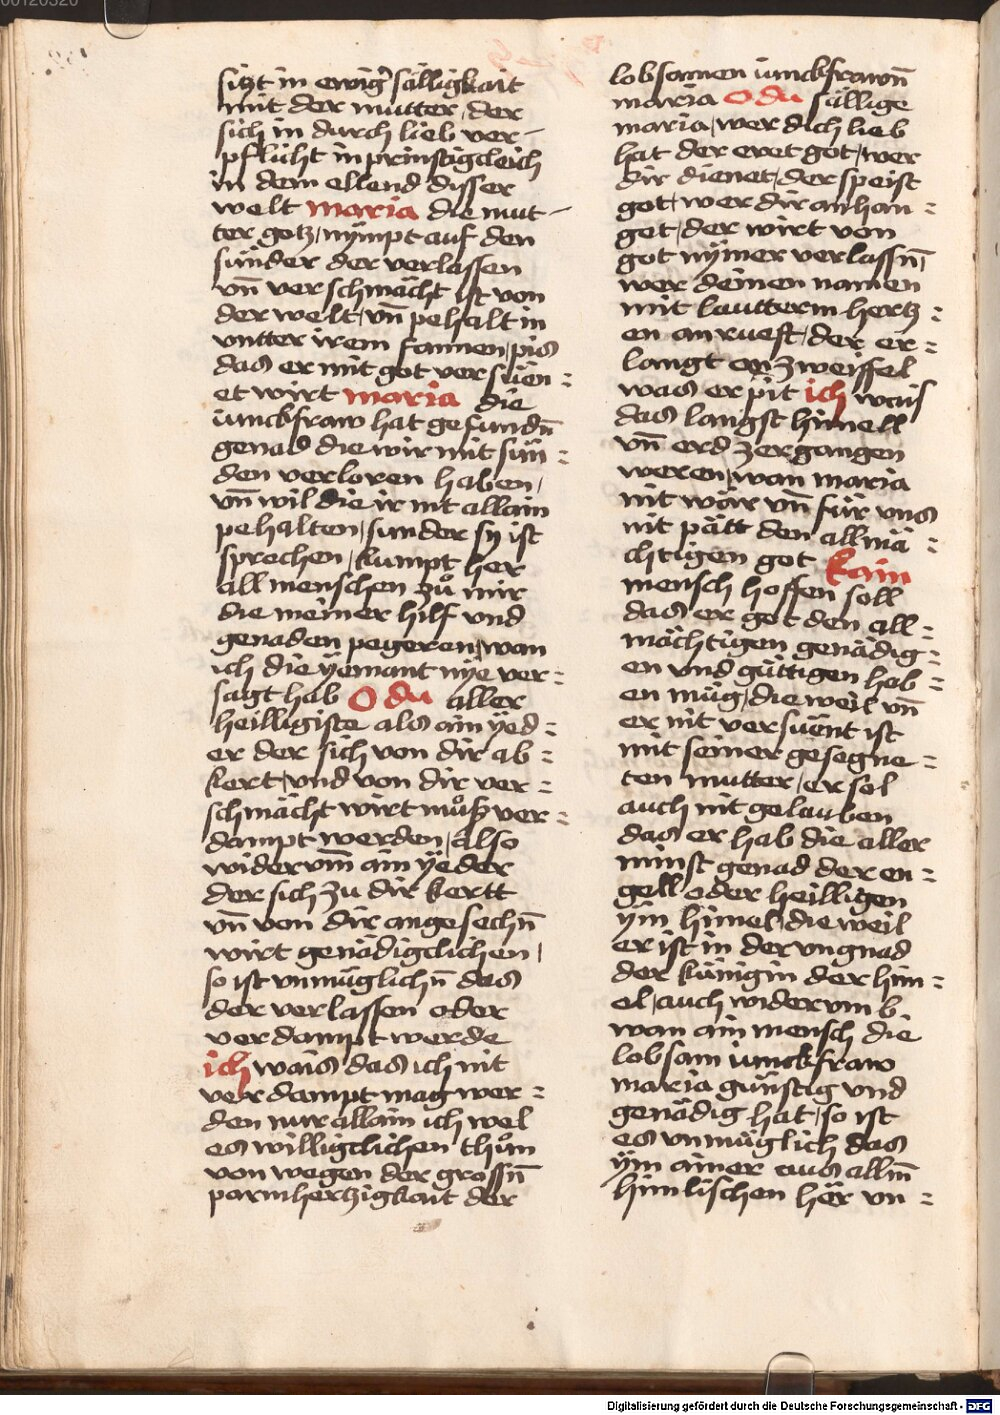 sitzt in ewiger sälligkait
mit der mutter / der
sich in durch lieb ver-
pflicht in prinstigcleich
in dem ellend disser
welt maria die mut-
ter gotz / nÿmpt auf den
sünder der verlassen
vn̄ verschmächt ist von
der welt / vn̄ pehalt in
vntter irem fannen / pis
das er mit got versüen =
et wirt maria die
iunckfraw hat gefundn̄
genad die wir mit sün =
den verloren haben /
vn̄ wil die ir nit allain
pehalten / sunder sy ist
sprechen / kumpt her
all menschen zů mir
die meiner hilf vnd
genaden pegeren / wan
ich die ÿemant nÿe ver =
sagt hab O du aller
heilligiste als ain ÿed =
er der sich von dir ab =
kert / vnd von dir ver =
schmächt wirt můsz ver =
dampt werden / also
widervm̄ ain ÿeder
der sich zu dir kertt
vn̄ von dir angesechn̄
wirt genädigclichen /
so ist vnmüglichn̄ das
der verlassen oder
verdampt werde
ich wais das ich nit
verdampt mag wer =
den nur allain ich wel
es willigclichen thůn
von wegen der grossn̄
parmhertzigkait der
lobsamen iunckfrawn̄
maria O du sällige
maria / wer dich lieb
hat der eret got / wer
dir dienet / der speist
got / wer dir anhan =
get / der wirt von
got nÿmer verlassn̄ /
wer deinen namen
mit lautterm hertz =
en anrueft / der er =
langt on zweiffel
was er pit ich wais
das langst himell
vn̄ erd zergangen
weren / wan maria
nit wär vn̄ für vns
nit pätt den allmä =
chtigen got Kain
mensch hoffen soll
das er got den all =
mächtigen genädig =
en vnd güttigen hab =
en müg / die weil vn̄
er nit versuent ist
mit seiner gesegne =
ten mutter / er sol
auch nit gelauben
das er hab die aller
minst genad der en =
gell oder heilligen
ÿm himel / die weil
er ist in der vngnad
der künigin der him =
el / auch widervmb
wan ain mensch die
lobsam iunckfraw
maria günstig vnd
genädig hat / so ist
es vnmüglich das
ÿm ainer aus allm̄
himlischen hër vn =
Digitalisierung gefördert durch die Deutsche Forschungsgemeinschaft - DFG